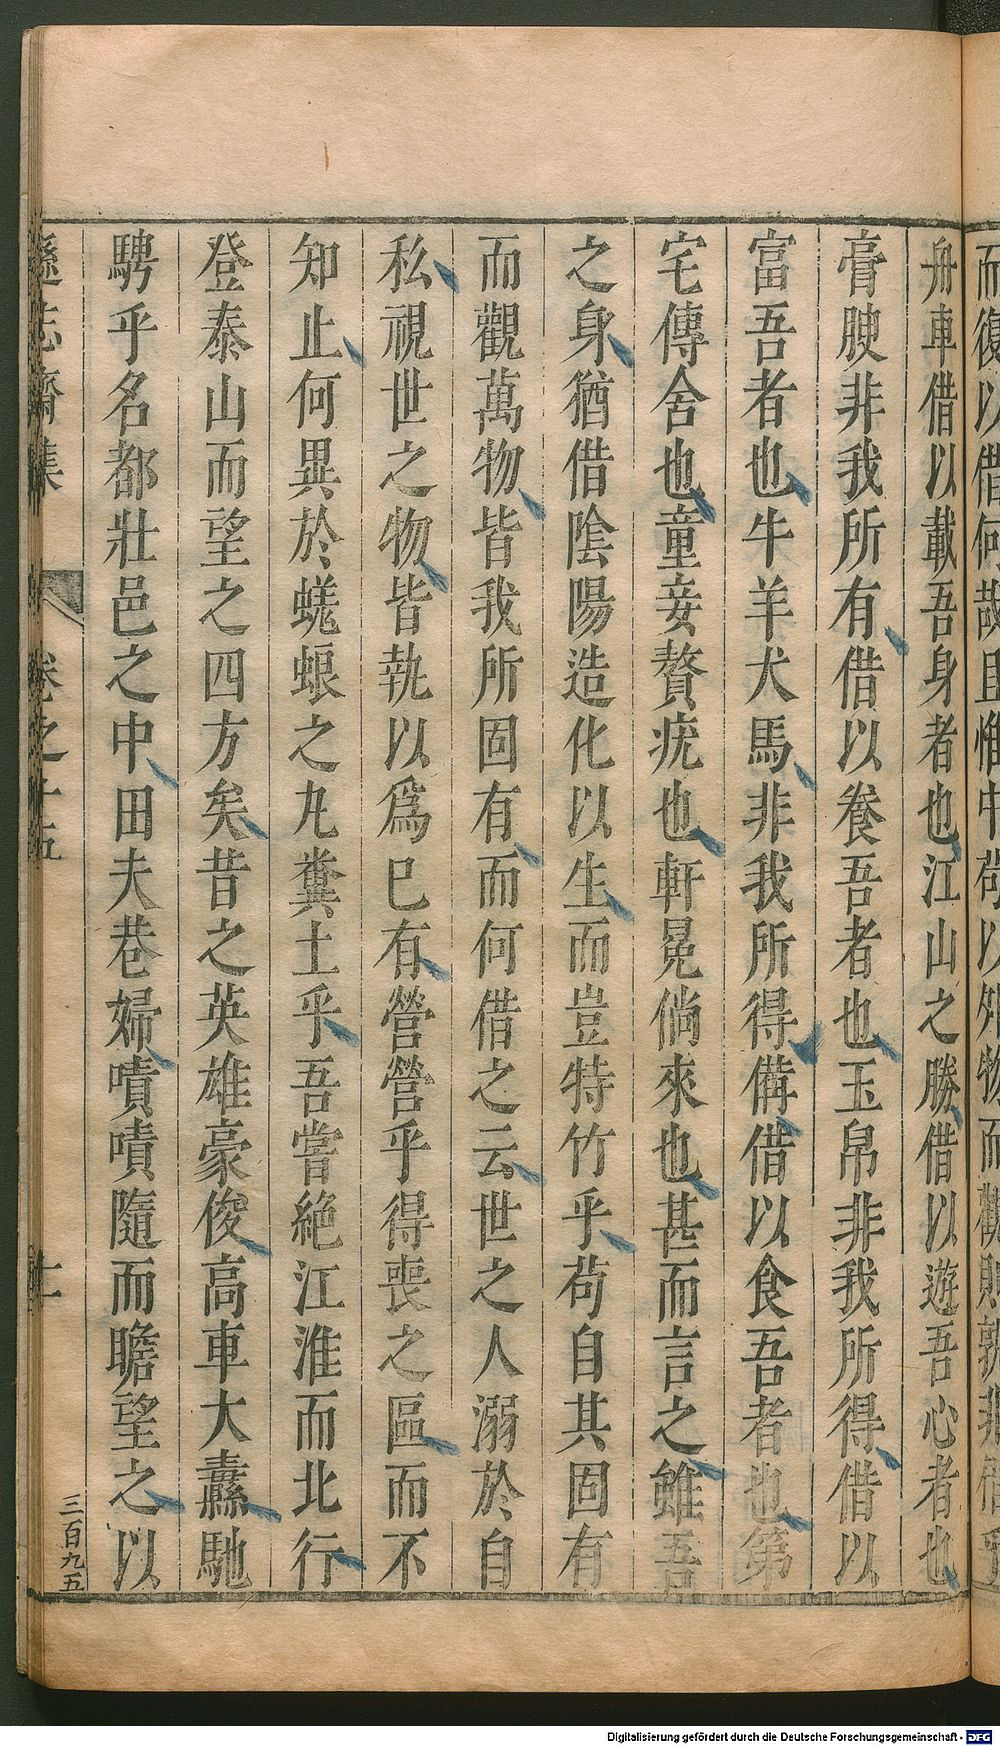 而復以借何哉且惟中苟以外物而觀則孰非借乎
舟車借以載吾身者也江山之勝借以遊吾心者也
膏腴非我所有借以養吾者也玉帛非我所得借以
富吾者也牛羊犬馬非我所得備借以食吾者也第
宅傳舍也童妾贅疣也軒冕倘來也甚而言之雖吾
之身猶借陰陽造化以生而豈特竹乎苟自其固有
而觀萬物皆我所固有而何借之云世之人溺於自
私視世之物皆執以爲已有營營乎得喪之區而不
知止何異於蜣蜋之丸糞土乎吾嘗絕江淮而北行
登泰山而望之四方矣昔之英雄豪俊高車大纛馳
騁乎名都壯邑之中田夫巷婦嘖嘖隨而瞻望之以
遜志齋集 卷之十五 十 三百九五
Digitalisierung gefördert durch die Deutsche Forschungsgemeinschaft - DFG